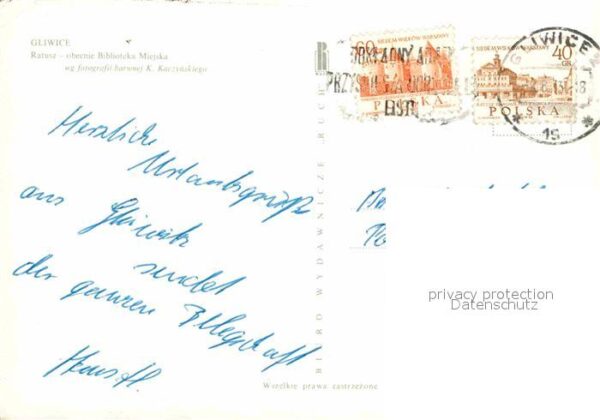 GLIWICE
Ratusz — obecnie Biblioteka Miejska
wg fotografii barwnej K. Kaczyńskiego
Herzliche
Urlaubsgrüße
aus Gleiwitz
sendet
der ganzen Belegschaft
BIURO WYDAWNICZE RUCH
Wszelkie prawa zastrzeżone
60
SIEDEM WIEKÓW WARSZAWY
POLSKA
SIEDEM WIEKÓW WARSZAWY
40
GR
POLSKA
DOKŁADNY ADRES
PRZYSPIESZA DORĘCZENIE
LISTU
GLIWICE
15
privacy protection
Datenschutz